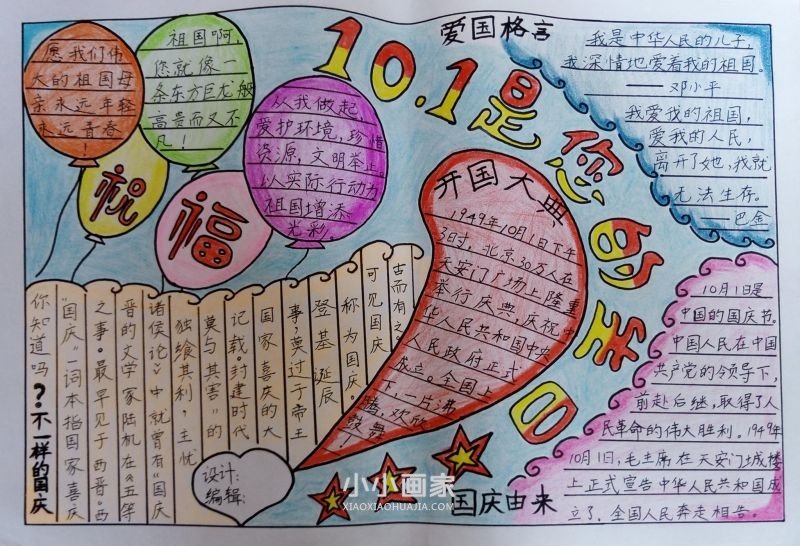 愿我们伟
大的祖国母
亲永远年轻
永远青春
!
祖国啊,
您就像一
条东方巨龙般
高贵而又不
凡!
从我做起,
爱护环境,珍惜
资源,文明举止。
以实际行动为
祖国增添
光彩。
祝
福
10.1是您的生日
爱国格言
我是中华人民的儿子,
我深情地爱着我的祖国。
——邓小平
我爱我的祖国,
爱我的人民,
离开了她,我就
无法生存。
——巴金
开国大典
1949年10月1日下午
3时,北京30万人在
天安门广场上隆重
举行庆典,庆祝中
华人民共和国中央
人民政府正式
成立。全国上
下,一片沸
腾,欢欣
鼓舞
!
你知道吗?不一样的国庆
“国庆”一词本指国家喜庆
之事。最早见于西晋。西
晋的文学家陆机在《五等
诸侯论》中就曾有“国庆
独飨其利,主忧
莫与其害”的
记载封建时代
国家喜庆的大
事,莫过于帝王
登基诞辰
称为国庆。
可见国庆
古而有之。
设计:
编辑:
国庆由来
10月1日是
中国的国庆节。
中国人民在中国
共产党的领导下,
前赴后继,取得了人
民革命的伟大胜利。1949年
10月1日,毛主席在天安门城楼
上正式宣告中华人民共和国成
立了。全国人民奔走相告。
小小画家
XIAOXIAOHUAJIA.COM